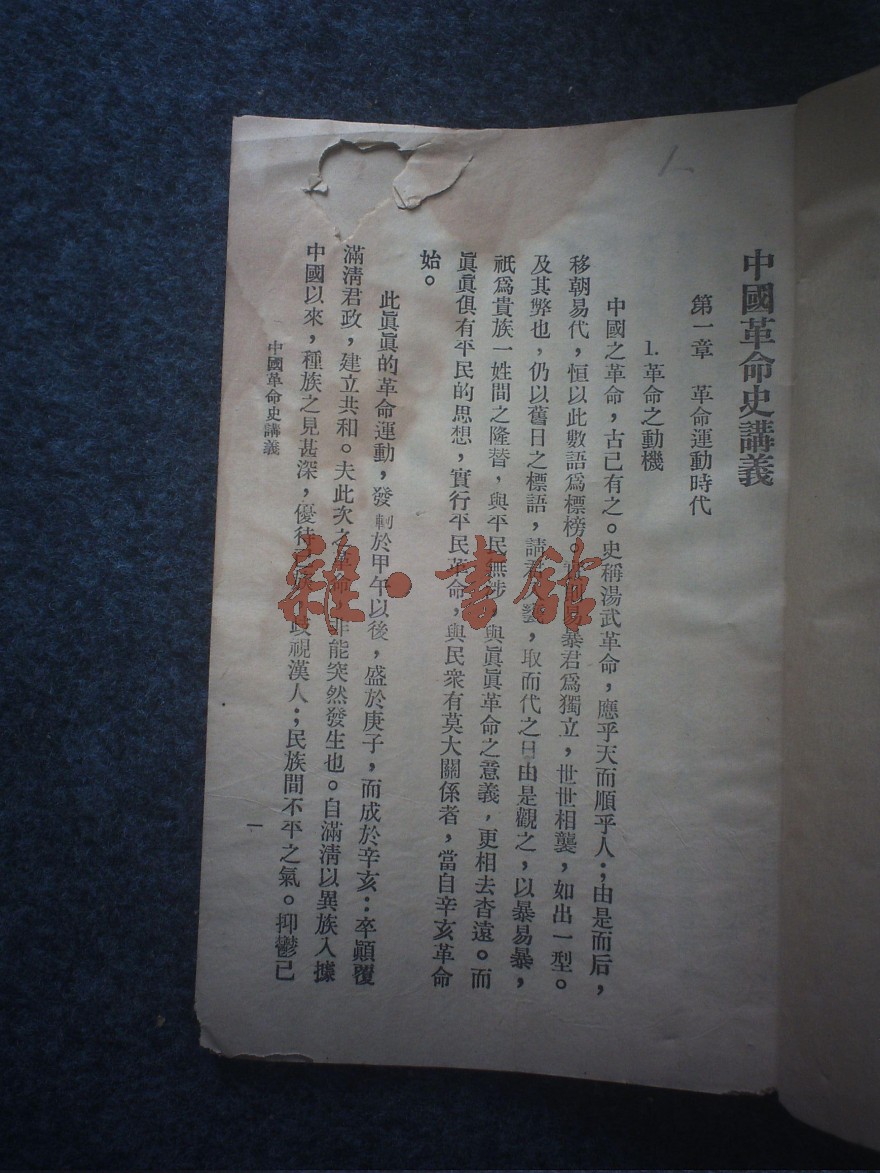 中國革命史講義
第一章 革命運動時代
1. 革命之動機
中國之革命，古已有之。史稱湯武革命，應乎天而順乎人；由是而后，
移朝易代，恒以此數語爲標榜。易暴君爲獨立，世世相襲，如出一型。
及其弊也，仍以舊日之標語，請君，取而代之由是觀之，以暴易暴，
祇爲貴族一姓間之隆替，與平民無涉，與眞眞革命之意義，更相去杳遠。而
眞眞俱有平民的思想，實行平民革命，與民衆有莫大關係者，當自辛亥革命
始。
此眞眞的革命運動，發軔於甲午以後，盛於庚子，而成於辛亥：卒顚覆
滿淸君政，建立共和。夫此次之革命，非能突然發生也。自滿淸以異族入據
中國以來，種族之見甚深，優待，歧視漢人；民族間不平之氣。抑鬱已
中國革命史講義
一
雜·書館